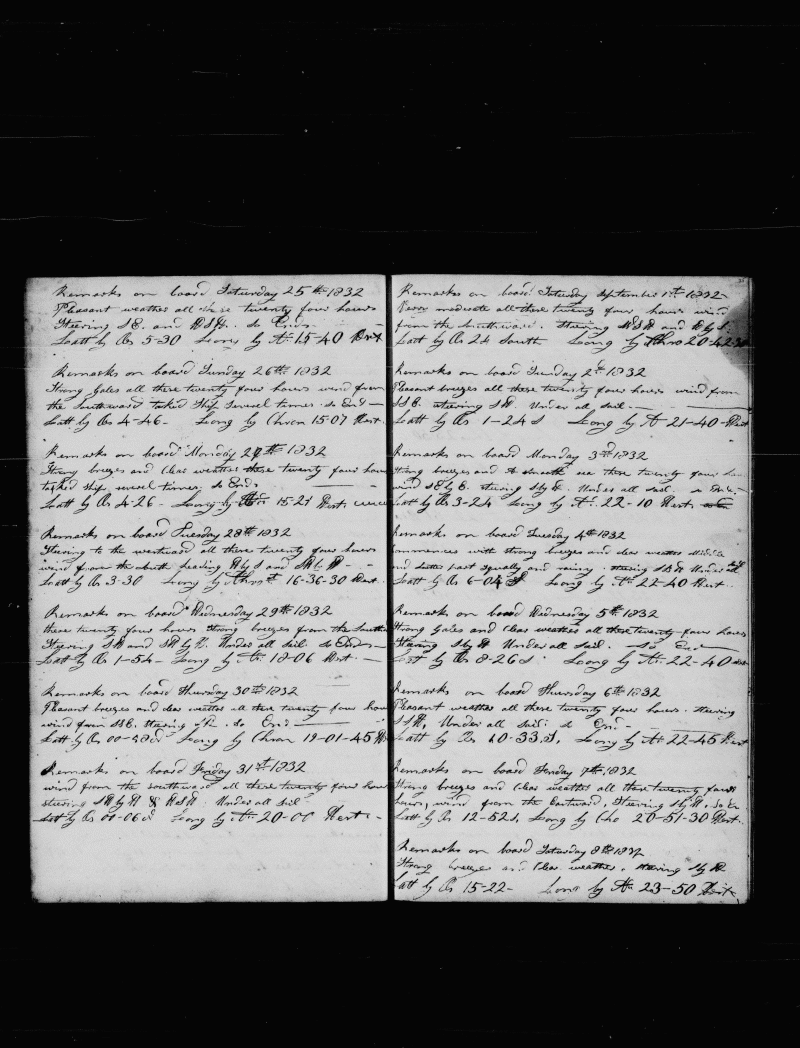 Remarks on board Saturday 25th 1832
Pleasant weather all these twenty four hours
Steering SE. and WSW. so Ends
Latt by Os 5-30 Long by 15-40 West
Remarks on board Sunday 26th 1832
Strong Gales all these twenty four hours wind from
the Southward tacked Ship several times so End
Latt by Os 4-46- Long by Chron 15-07 West.
Remarks on board Monday 27th 1832
Strong breezes and Clear weather these twenty four hours
tacked ship several times so Ends
Latt by Os 4-26- Long by 15-21 West.
Remarks on board Tuesday 28th 1832
Steering to the westward all these twenty four hours
wind from the South heading W by S and
Latt by Os 3-30 Long by 16-36-30 West
Remarks on board Wednesday 29th 1832
these twenty four hours Strong breezes from the South
Steering SW and SW by W. Under all sail so Ends
Latt by Os 1-54- Long by 18-06 West
Remarks on board Thursday 30th 1832
Pleasant breezes and clear weather all these twenty four hours
wind from SSE. steering so End
Latt by Os 00- Long by Chron 19-01-45 W
Remarks on board Friday 31st 1832
wind from the southward all these twenty four hours
steering SW by W & WSW Under all sail
Latt by Os 00-06 Long by 20-00 West
Remarks on board Saturday September 1st 1832
moderate all these twenty four hours wind
from the Southward. Steering WSW and W by S.
Latt by Os 24 South Long by Chro 20-42-30
Remarks on board Sunday 2d 1832
Pleasant breezes all these twenty four hours wind from
SSE steering SW. Under all sail
Latt by Os 1-24 S Long by 21-40 West
Remarks on board Monday 3rd 1832
Strong breezes and A smooth sea these twenty four
wind SE by E. steering S by W. Under all sail. so Ends
Latt by Os 3-24 Long by 22-10 West
Remarks on board Tuesday 4th 1832
Commences with strong breezes and clear weather Middle
and Latter part squally and rainy. steering Under all
Latt by Os 6-04 S Long by 22-40 West
Remarks on board Wednesday 5th 1832
Strong Gales and Clear weather all these twenty four hours
Steering S by W Under all sail. So End
Latt by Os 8-26 S Long by 22-40 West
Remarks on board Thursday 6th 1832
Pleasant weather all these twenty four hours. steering
SSW, Under all sail so End
Latt by Os 10-33.S, Long by 22-45 West
Remarks on board Friday 7th, 1832
Strong breezes and Clear weather all these twenty four
hours, wind from the Eastward, Steering S by W. so En
Latt by Os 12-52 S, Long by Chro 20-51-30 West.
Remarks on board Saturday 8th 1832
Strong breezes and Clear weather. steering S by W
Latt by Os 15-22- Long by 23-50 West